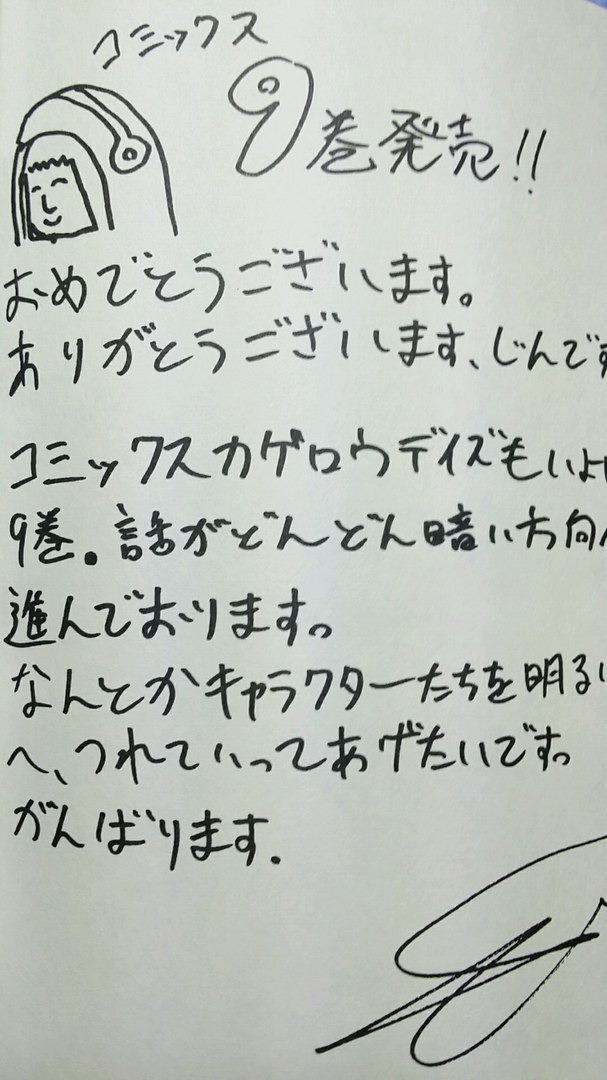 コミックス
9巻発売!!
おめでとうございます。
ありがとうございます、じんです
コミックスカゲロウデイズもいよ
9巻。話がどんどん暗い方向
進んでおります。
なんとかキャラクターたちを明る
へ、つれていってあげたいです。
がんばります.